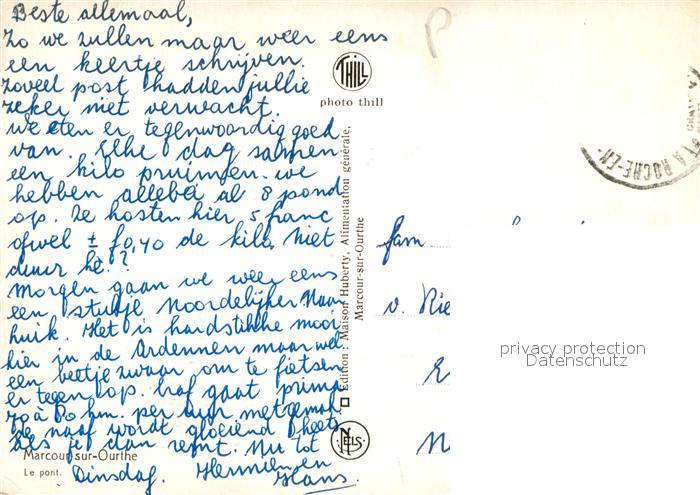 Beste allemaal,
Zo we zullen maar weer eens
een keertje schrijven.
Zoveel post hadden jullie
zeker niet verwacht.
we eten er tegenwoordig goed
van. Elke dag samen
een kilo pruimen. we
hebben allebei al 8 pond
op. Ze kosten hier 5 franc
ofwel ± f0,40 de kilo. Niet
duur hè.?
Morgen gaan we weer eens
een stukje Noordelijker Naar
huis. Het is hardstikke mooi
hier in de Ardennen maar wel
een beetje zwaar om te fietsen
er tegen op. Eraf gaat prima
70 à 80 km. per uur met gemak
De naaf wordt gloeiend heet
als je dan remt. Nu tot
Dinsdag. Hermien en
Hans.
Marcour-sur-Ourthe
Le pont.
THILL
photo thill
Edition : Maison Huberty, Alimentation générale,
Marcour-sur-Ourthe
NELS
LA ROCHE-EN-
fam
v. Rie
privacy protection
Datenschutz